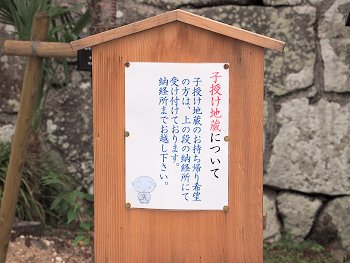 子授け地蔵について
子授け地蔵のお持ち帰り希望
の方は、上の段の納経所にて
受け付けております。
納経所までお越し下さい。